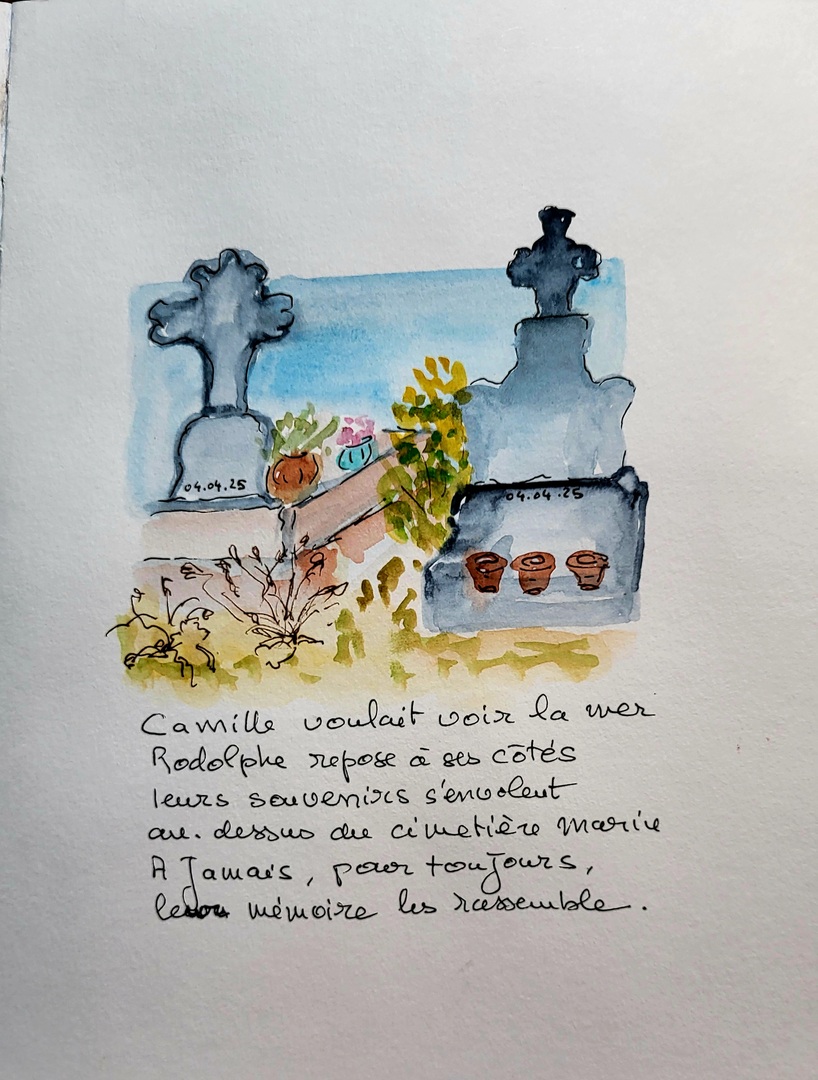 04.04.25
04.04.25
Camille voulait voir la mer
Rodolphe repose à ses côtés
leurs souvenirs s'envolent
au.dessus du cimetière marin
A Jamais, pour toujours,
leur mémoire les rassemble.